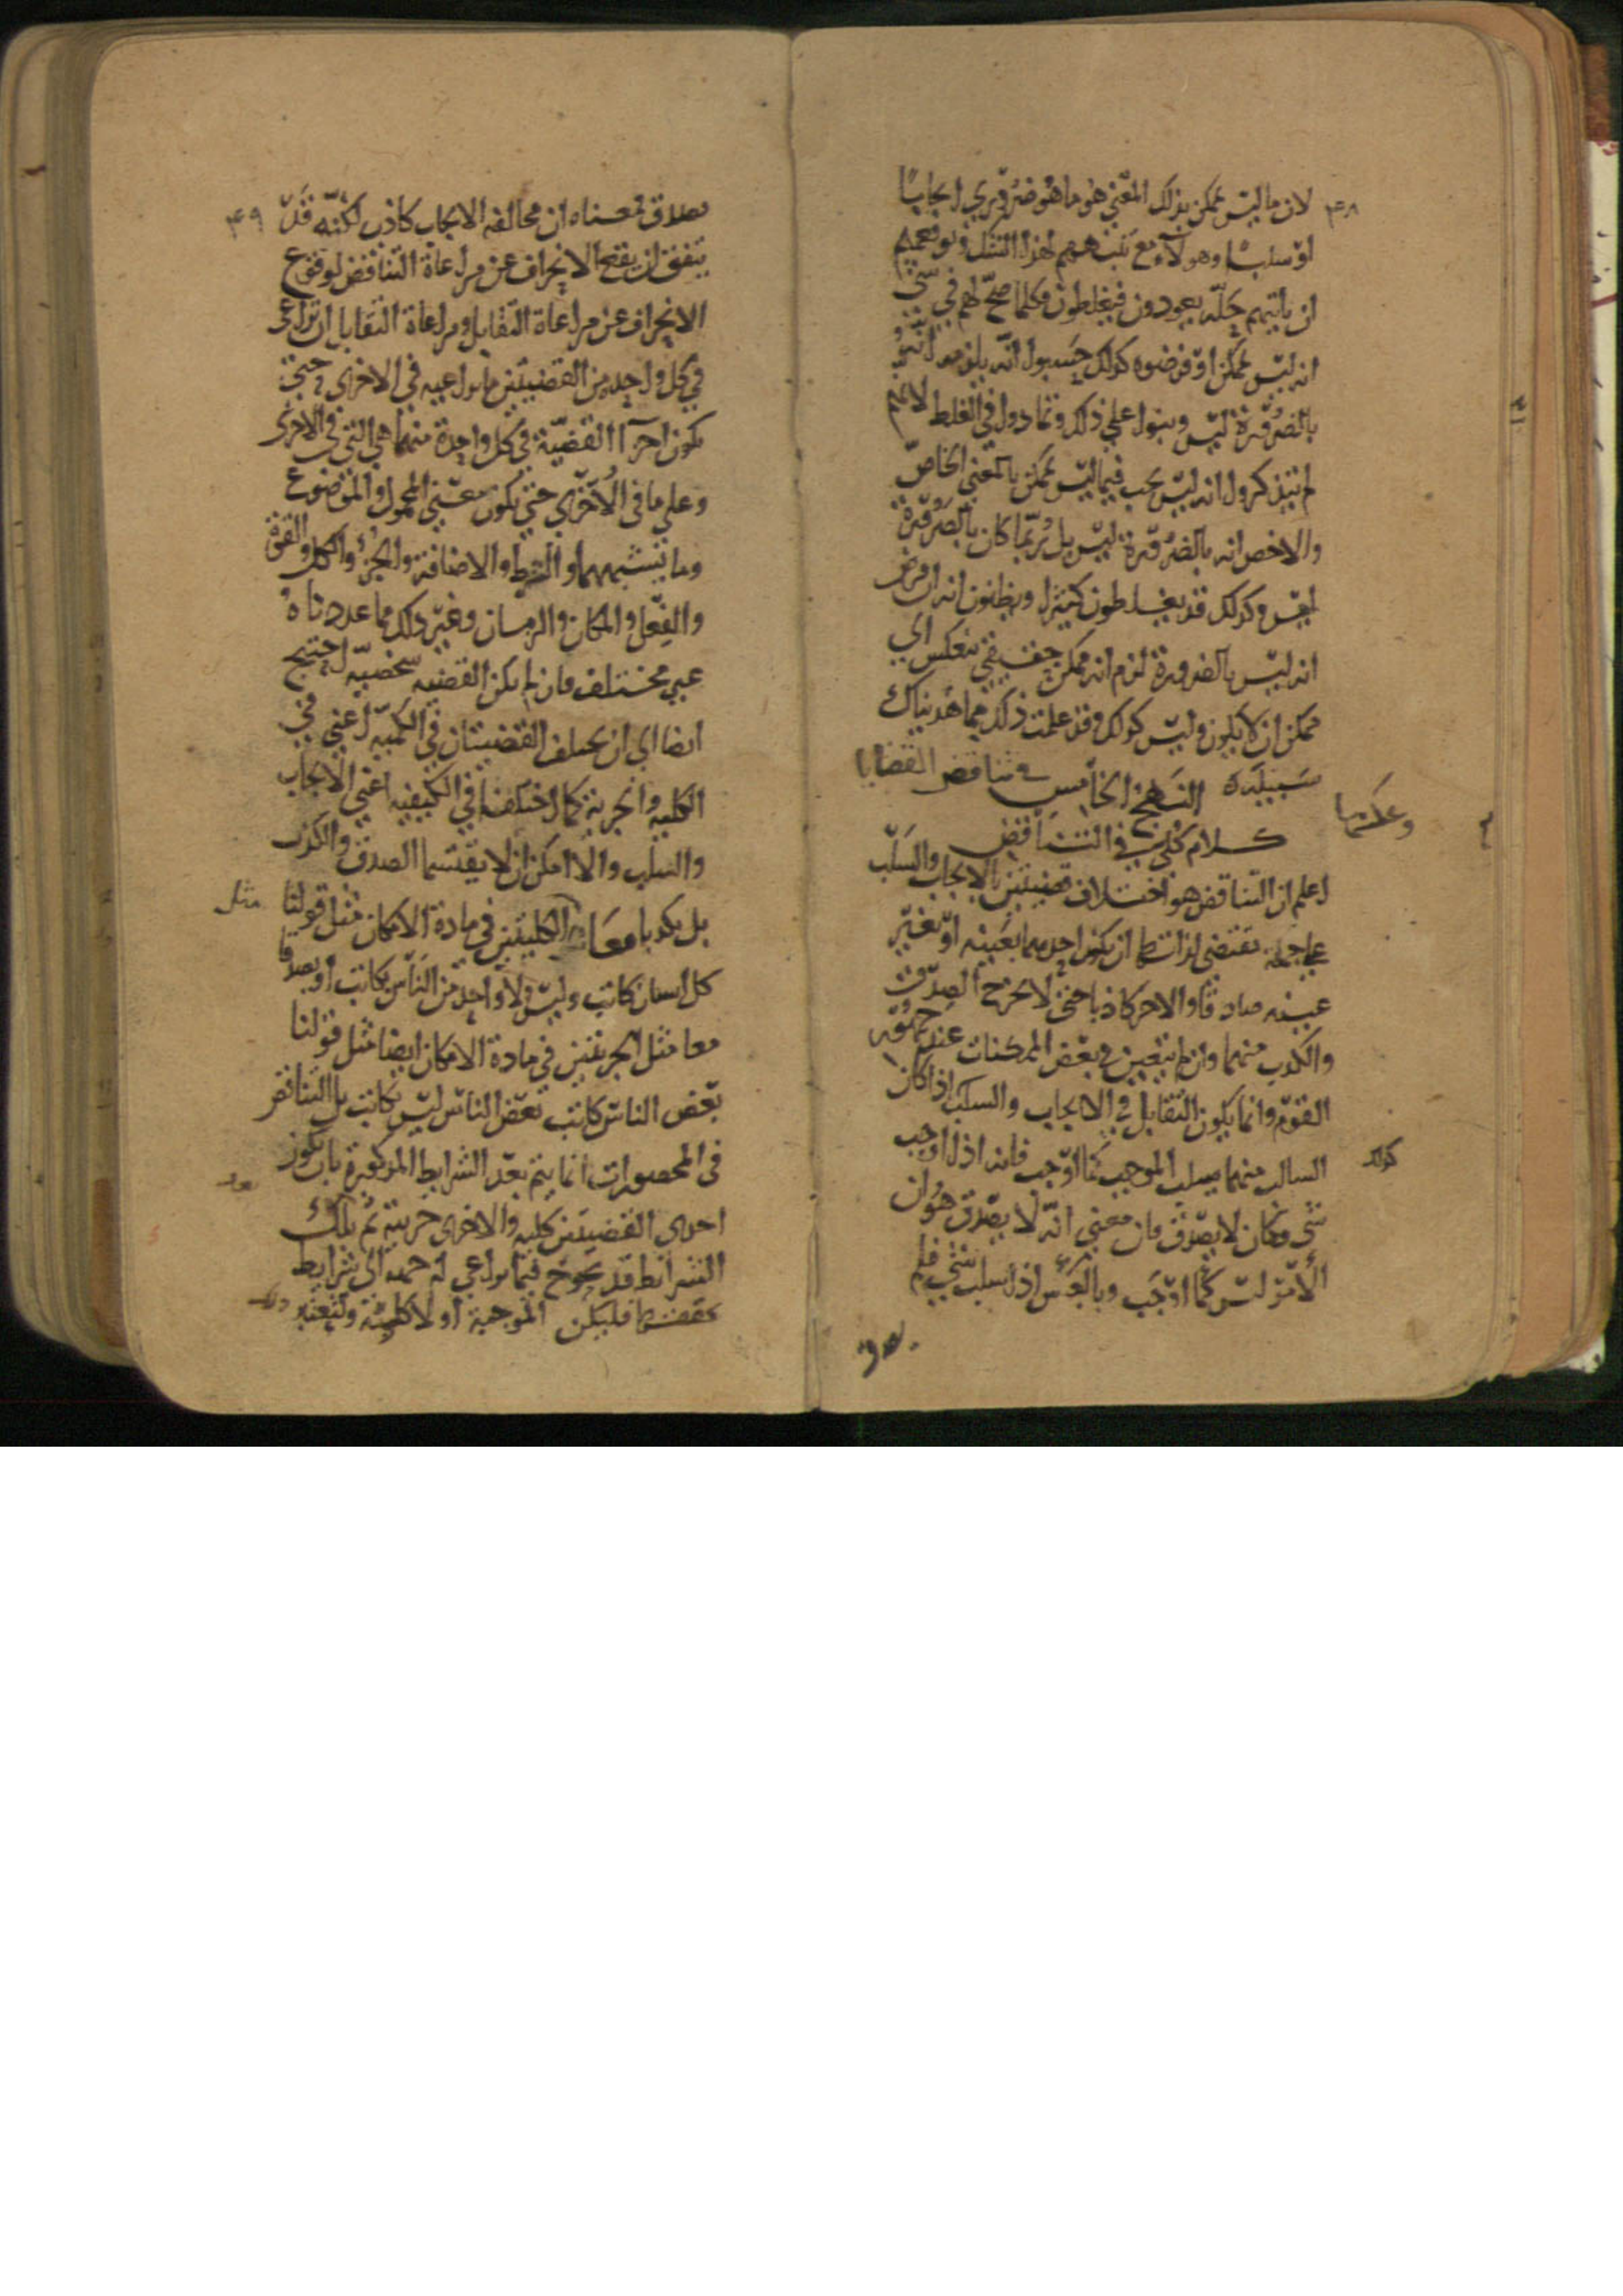 ۴۸
لان ما ليس بممكن بذلك المعني هو ما هو ضروري ايجابًا
او سلبًا وهولاء مع تنبههم لهذا الشك وتوقعهم
ان ياتيهم حله يعودون فيغلطون فكلما صح لهم في شي
انه ليس بممكن او فرضوه كذلك حسبوا انه يلزمه انه
بالضرورة ليس وبنوا علي ذلك وتمادوا في الغلط لانهم
لم يتذكروا انه ليس يجب فيما ليس بممكن بالمعني الخاص
والاخص انه بالضرورة ليس بل ربما كان بالضرورة
ايس وكذلك قد يغلطون كثيرا ويظنون انه ان فرض
انه ليس بالضرورة لزم انه ممكن حقيقي ينعكس الي
ممكن ان لا يكون وليس كذلك وقد علمت ذلك مما هديناك
سبيله النهج الخامس في تناقض القضايا
وعكسها
كلام كلي في التناقض
اعلم ان التناقض هو اختلاف قضيتين بالايجاب والسلب
علي جهة تقتضي لذاتها ان يكون احدهما بعينه او بغير
عينه صادقا والاخر كاذبا حتى لا يخرج الصدق
والكذب منهما وان لم يتعين في بعض الممكنات عند جمهور
القوم وانما يكون التقابل في الايجاب والسلب اذا كان
السالب منهما يسلب الموجب كما اوجب فانه اذا اوجب
كذلك
شي وكان لا يصدق فان معني انه لا يصدق هو ان
الامر ليس كما اوجب وبالعكس اذا سلب شي فلم
يصدق
۴۹
يصدق فمعناه ان مخالفه الايجاب كاذب لكنه قد
يتفق ان يقع الانحراف عن مراعاة التناقض لوقوع
الانحراف عن مراعاة التقابل ومراعاة التقابل ان تراعى
في كل واحدة من القضيتين ما تراعيه في الاخرى حتى
يكون اجزا القضية في كل واحدة منهما هي التي في الاخرى
وعلي ما في الاخري حتي يكون معني المحمول والموضوع
وما يشبههما والشرط والاضافة والجزء والكل والقوة
والفعل والمكان والزمان وغير ذلك مما عددناه
غير مختلف فان لم يكن القضيه شخصيه احتيج
ايضا الي ان يختلف القضيتان في الكميه اعني في
الكليه والجزية كما اختلفتا في الكيفيه اعني الايجاب
والسلب والا امكن ان لا يقتسما الصدق والكذب
بل يكذبا معا الكليتين في مادة الامكان مثل قولنا
مثل
كل انسان كاتب وليس ولا واحد من الناس بكاتب او يصدقا
معا مثل الجزيتين في مادة الامكان ايضا مثل قولنا
بعض الناس كاتب بعض الناس ليس بكاتب بل التناقض
في المحصورات انما يتم بعد الشرايط المذكورة بان يكون
احدى القضيتين كليه والاخرى جزيية ثم تلك
الشرائط قد يحوج فيما يراعي له جهة الى شرايط
فليكن الموجبة اولا كلية ولنعتبر